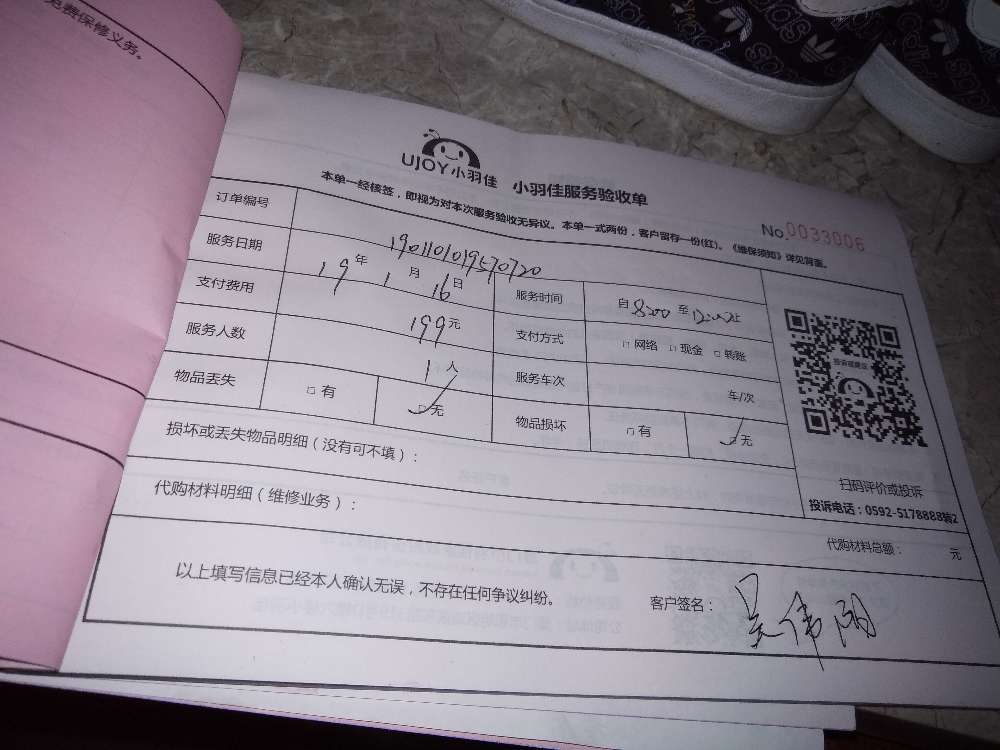 免费保修义务。
UJOY小羽佳 小羽佳服务验收单
本单一经核签，即视为对本次服务验收无异议。本单一式两份，客户留存一份(红)。《维保须知》详见背面。
No.0033006
订单编号 1901101019570720
服务日期 19年1月16日 服务时间 自8:00至12:00止
支付费用 199元 支付方式 □网络 □现金 □转账
服务人数 1人 服务车次 车/次
物品丢失 □有 ☑无 物品损坏 □有 ☑无
损坏或丢失物品明细（没有可不填）：
扫码评价或投诉
投诉电话：0592-5178888转2
代购材料明细（维修业务）：
代购材料总额： 元
以上填写信息已经本人确认无误，不存在任何争议纠纷。
客户签名：